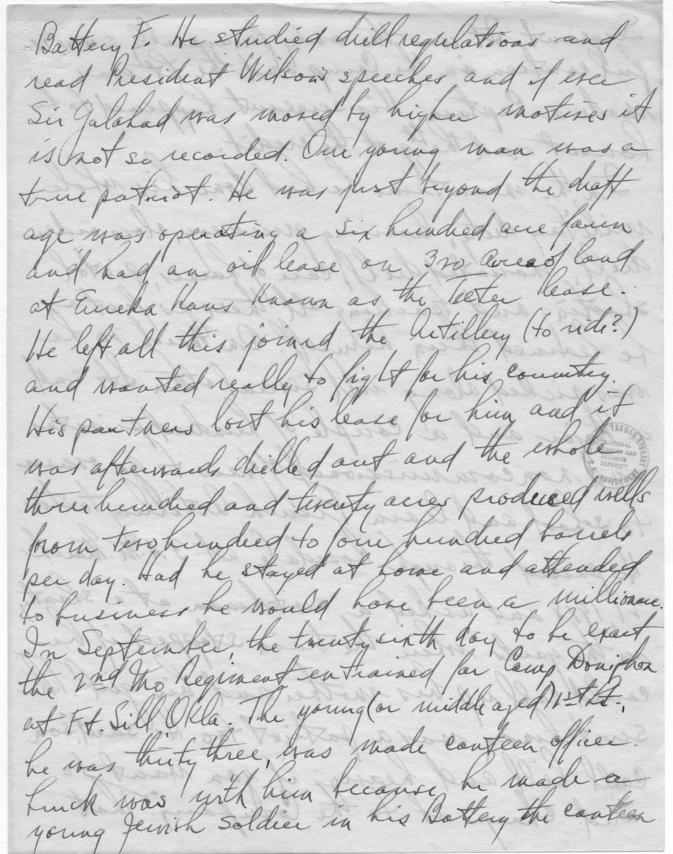 Battery F. He studied drill regulations and
read President Wilson's speeches and if ever
Sir Galahad was moved by higher motives it
is not so recorded. Our young man was a
true patriot. He was just beyond the draft
age was operating a six hundred acre farm
and had an oil lease on 320 acres of land
at Eureka Kans known as the Teeter lease.
He left all this joined the Artillery (to ride?)
and wanted really to fight for his country.
His partners lost his lease for him and it
was afterwards drilled out and the whole
three hundred and twenty acres produced wells
from two hundred to four hundred barrels
per day. Had he stayed at home and attended
to business he would have been a millionaire.
In September, the twenty sixth day to be exact
the 2nd Mo Regiment entrained for Camp Doniphan
at Ft. Sill Okla. The young (or middle aged) 1st Lt.,
he was thirty three, was made canteen officer.
Luck was with him because he made a
young Jewish Soldier in his Battery the canteen